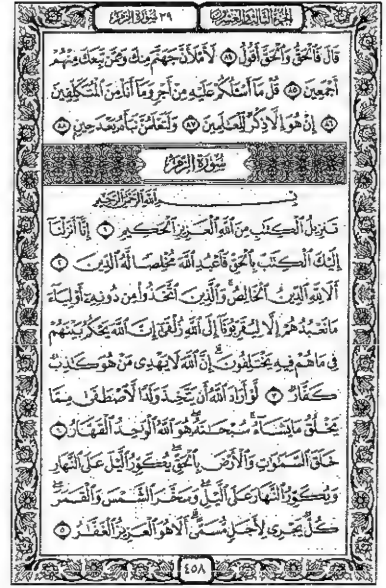 الجزء الثالث والعشرون
٣٩ سورة الزمر
قَالَ فَٱلْحَقُّ وَٱلْحَقَّ أَقُولُ ٨٤ لَأَمْلَأَنَّ جَهَنَّمَ مِنكَ وَمِمَّن تَبِعَكَ مِنْهُمْ
أَجْمَعِينَ ٨٥ قُلْ مَآ أَسْـَٔلُكُمْ عَلَيْهِ مِنْ أَجْرٍ وَمَآ أَنَا۠ مِنَ ٱلْمُتَكَلِّفِينَ
٨٦ إِنْ هُوَ إِلَّا ذِكْرٌ لِّلْعَـٰلَمِينَ ٨٧ وَلَتَعْلَمُنَّ نَبَأَهُۥ بَعْدَ حِينٍۭ ٨٨
سُورَةُ الزُّمَرِ
بِسْمِ ٱللَّهِ ٱلرَّحْمَـٰنِ ٱلرَّحِيمِ
تَنزِيلُ ٱلْكِتَـٰبِ مِنَ ٱللَّهِ ٱلْعَزِيزِ ٱلْحَكِيمِ ١ إِنَّآ أَنزَلْنَآ
إِلَيْكَ ٱلْكِتَـٰبَ بِٱلْحَقِّ فَٱعْبُدِ ٱللَّهَ مُخْلِصًا لَّهُ ٱلدِّينَ ٢
أَلَا لِلَّهِ ٱلدِّينُ ٱلْخَالِصُ ۚ وَٱلَّذِينَ ٱتَّخَذُوا۟ مِن دُونِهِۦٓ أَوْلِيَآءَ
مَا نَعْبُدُهُمْ إِلَّا لِيُقَرِّبُونَآ إِلَى ٱللَّهِ زُلْفَىٰٓ إِنَّ ٱللَّهَ يَحْكُمُ بَيْنَهُمْ
فِى مَا هُمْ فِيهِ يَخْتَلِفُونَ ۗ إِنَّ ٱللَّهَ لَا يَهْدِى مَنْ هُوَ كَـٰذِبٌ
كَفَّارٌ ٣ لَّوْ أَرَادَ ٱللَّهُ أَن يَتَّخِذَ وَلَدًا لَّٱصْطَفَىٰ مِمَّا
يَخْلُقُ مَا يَشَآءُ ۚ سُبْحَـٰنَهُۥ ۖ هُوَ ٱللَّهُ ٱلْوَٰحِدُ ٱلْقَهَّارُ ٤
خَلَقَ ٱلسَّمَـٰوَٰتِ وَٱلْأَرْضَ بِٱلْحَقِّ ۖ يُكَوِّرُ ٱلَّيْلَ عَلَى ٱلنَّهَارِ
وَيُكَوِّرُ ٱلنَّهَارَ عَلَى ٱلَّيْلِ ۖ وَسَخَّرَ ٱلشَّمْسَ وَٱلْقَمَرَ ۖ
كُلٌّ يَجْرِى لِأَجَلٍ مُّسَمًّى ۗ أَلَا هُوَ ٱلْعَزِيزُ ٱلْغَفَّـٰرُ ٥
٤٥٨